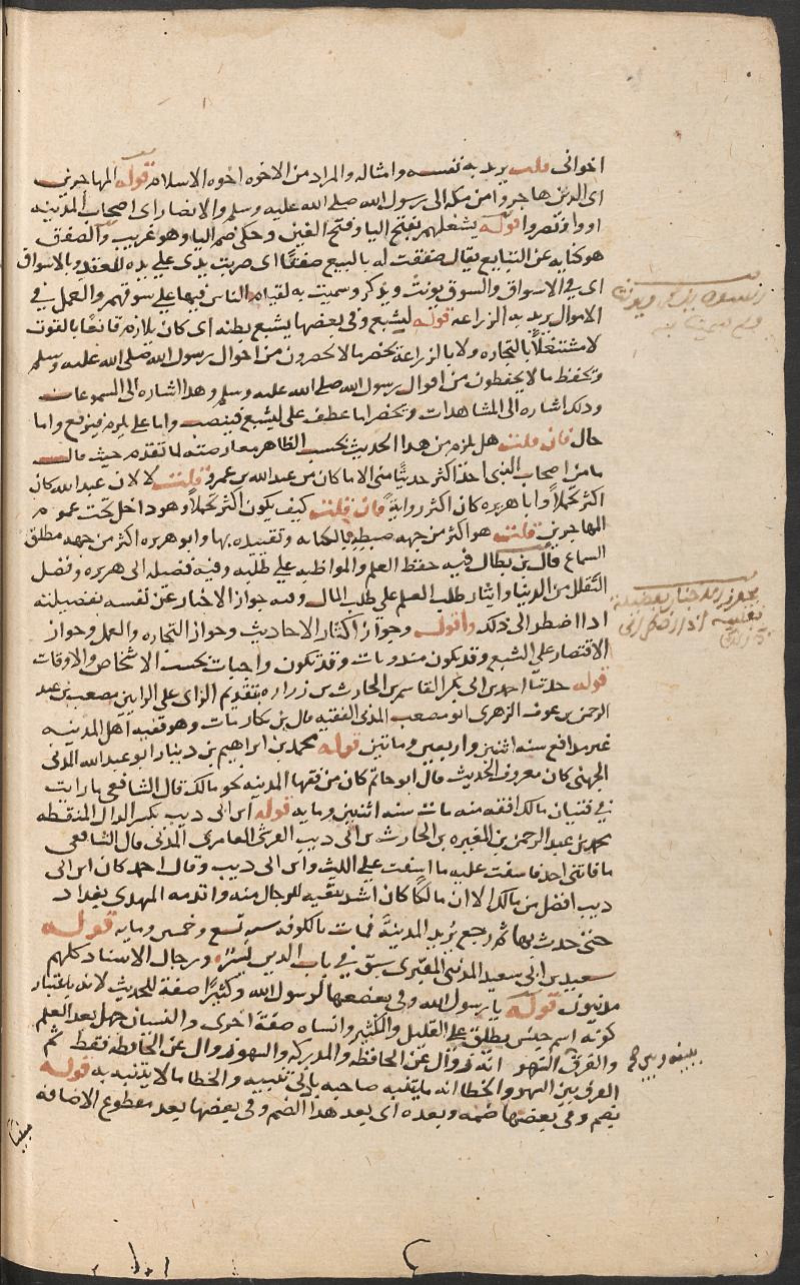 اخوانى قلت يريد به نفسه وامثاله والمراد من الاخوه اخوه الاسلام قوله المهاجرين
اى الذين هاجروا من مكه الى رسول الله صلى الله عليه وسلم والانصار اى اصحاب المدينه
اووا ونصروا قوله يشغلهم بفتح اليا وفتح الغين وحكى ضم اليا وهو غريب والصفق
هو كنايه عن التبايع يقال صفقت له بالبيع صفقًا اى ضربت يدى على يده للعقد وبالاسواق
اى فى الاسواق والسوق يونث ويذكر وسميت به لقيام الناس فيها على سوقهم والعمل فى
الاموال يريد به الزراعه قوله ليشبع وفى بعضها يشبع بطنه اى كان يلازم قانعًا بالقوت
لا مشتغلًا بالتجاره ولا بالزراعة يحضر ما لا يحضرون من احوال رسول الله صلى الله عليه وسلم
ويحفظ ما لا يحفظون من اقوال رسول الله صلى الله عليه وسلم وهذا اشاره الى المسموعات
وذلك اشاره الى المشاهدات ويحضر اما عطف على ليشبع فينصب واما على يلزم فيرفع واما
حال فان قلت هل يلزم من هذا الحديث بحسب الظاهر معارضته لما تقدم حيث قال
ما من اصحاب النبى احد اكثر حديثًا منى الا ما كان من عبد الله بن عمرو قلت لا لان عبد الله كان
اكثر تحملًا وابا هريره كان اكثر رواية فان قلت كيف يكون اكثر تحملًا وهو داخل تحت عموم
المهاجرين قلت هو اكثر من جهه ضبطه بالكتابه وتقييده بها وابو هريره اكثر من جهه مطلق
السماع قال بن بطال فيه حفظ العلم والمواظبه على طلبه وفيه فضيله ابى هريره وفضل
التقلل من الدنيا وايثار طلب العلم على طلب المال وفيه جواز الاخبار عن نفسه بفضيلته
اذا اضطر الى ذلك واقول وجواز اكثار الاحاديث وجواز التجاره والعمل وجواز
الاقتصار على الشبع وقد يكون مندوبات وقد يكون واجبات بحسب الاشخاص والاوقات
قوله حدثنا احمد بن ابى بكر القاسم بن الحارث بن زراره بتقديم الزاى على الراين بن مصعب بن عبد
الرحمن بن عوف الزهرى ابو مصعب المدنى الفقيه قال بن بكار مات وهو فقيه اهل المدينه
غير مدافع سنه اثنين واربعين ومائتين قوله محمد بن ابراهيم بن دينار ابو عبد الله المدنى
الجهنى كان معروف الحديث قال ابو حاتم كان من فقها المدينه نحو مالك قال الشافعى ما رايت
فى فتيان مالك افقه منه مات سنه اثنين ومايه قوله ابن ابى ذيب بكسر الذال المنقطه
محمد بن عبد الرحمن بن المغيره بن الحارث بن ابى ذيب القرشى العامرى المدنى قال الشافعى
ما فاتنى احد فاسفت عليه ما اسفت على الليث وابن ابى ذيب وقال احمد كان ابن ابى
ذيب افضل من مالك الا ان مالكًا كان اشد تنقيه للرجال منه واقدمه المهدى بغداد
حتى حدث بها ثم رجع يريد المدينة فمات بالكوفه سنه تسع وخمسين ومايه قوله
سعيد بن ابى سعيد المدنى المقبرى سبق فى باب الدين يسر ورجال الاسناد كلهم
مدنيون قوله يا رسول الله وفى بعضها لرسول الله وكثيرًا صفة للحديث لانه باعتبار
كونه اسم جنس يطلق على القليل والكثير وانساه صفة اخرى والنسيان جهل بعد العلم
والفرق بين السهو انه زوال عن الحافظه والمدركه والسهو زوال عن الحافظه فقط ثم
الفرق بين السهو والخطا انه ما يتنبه صاحبه بادنى تنبيه والخطا ما لا يتنبه به قوله
ضم وفى بعضها ضمه وبعده اى بعد هذا الضم وفى بعضها بعد مقطوع الاضافه
بينه وبين